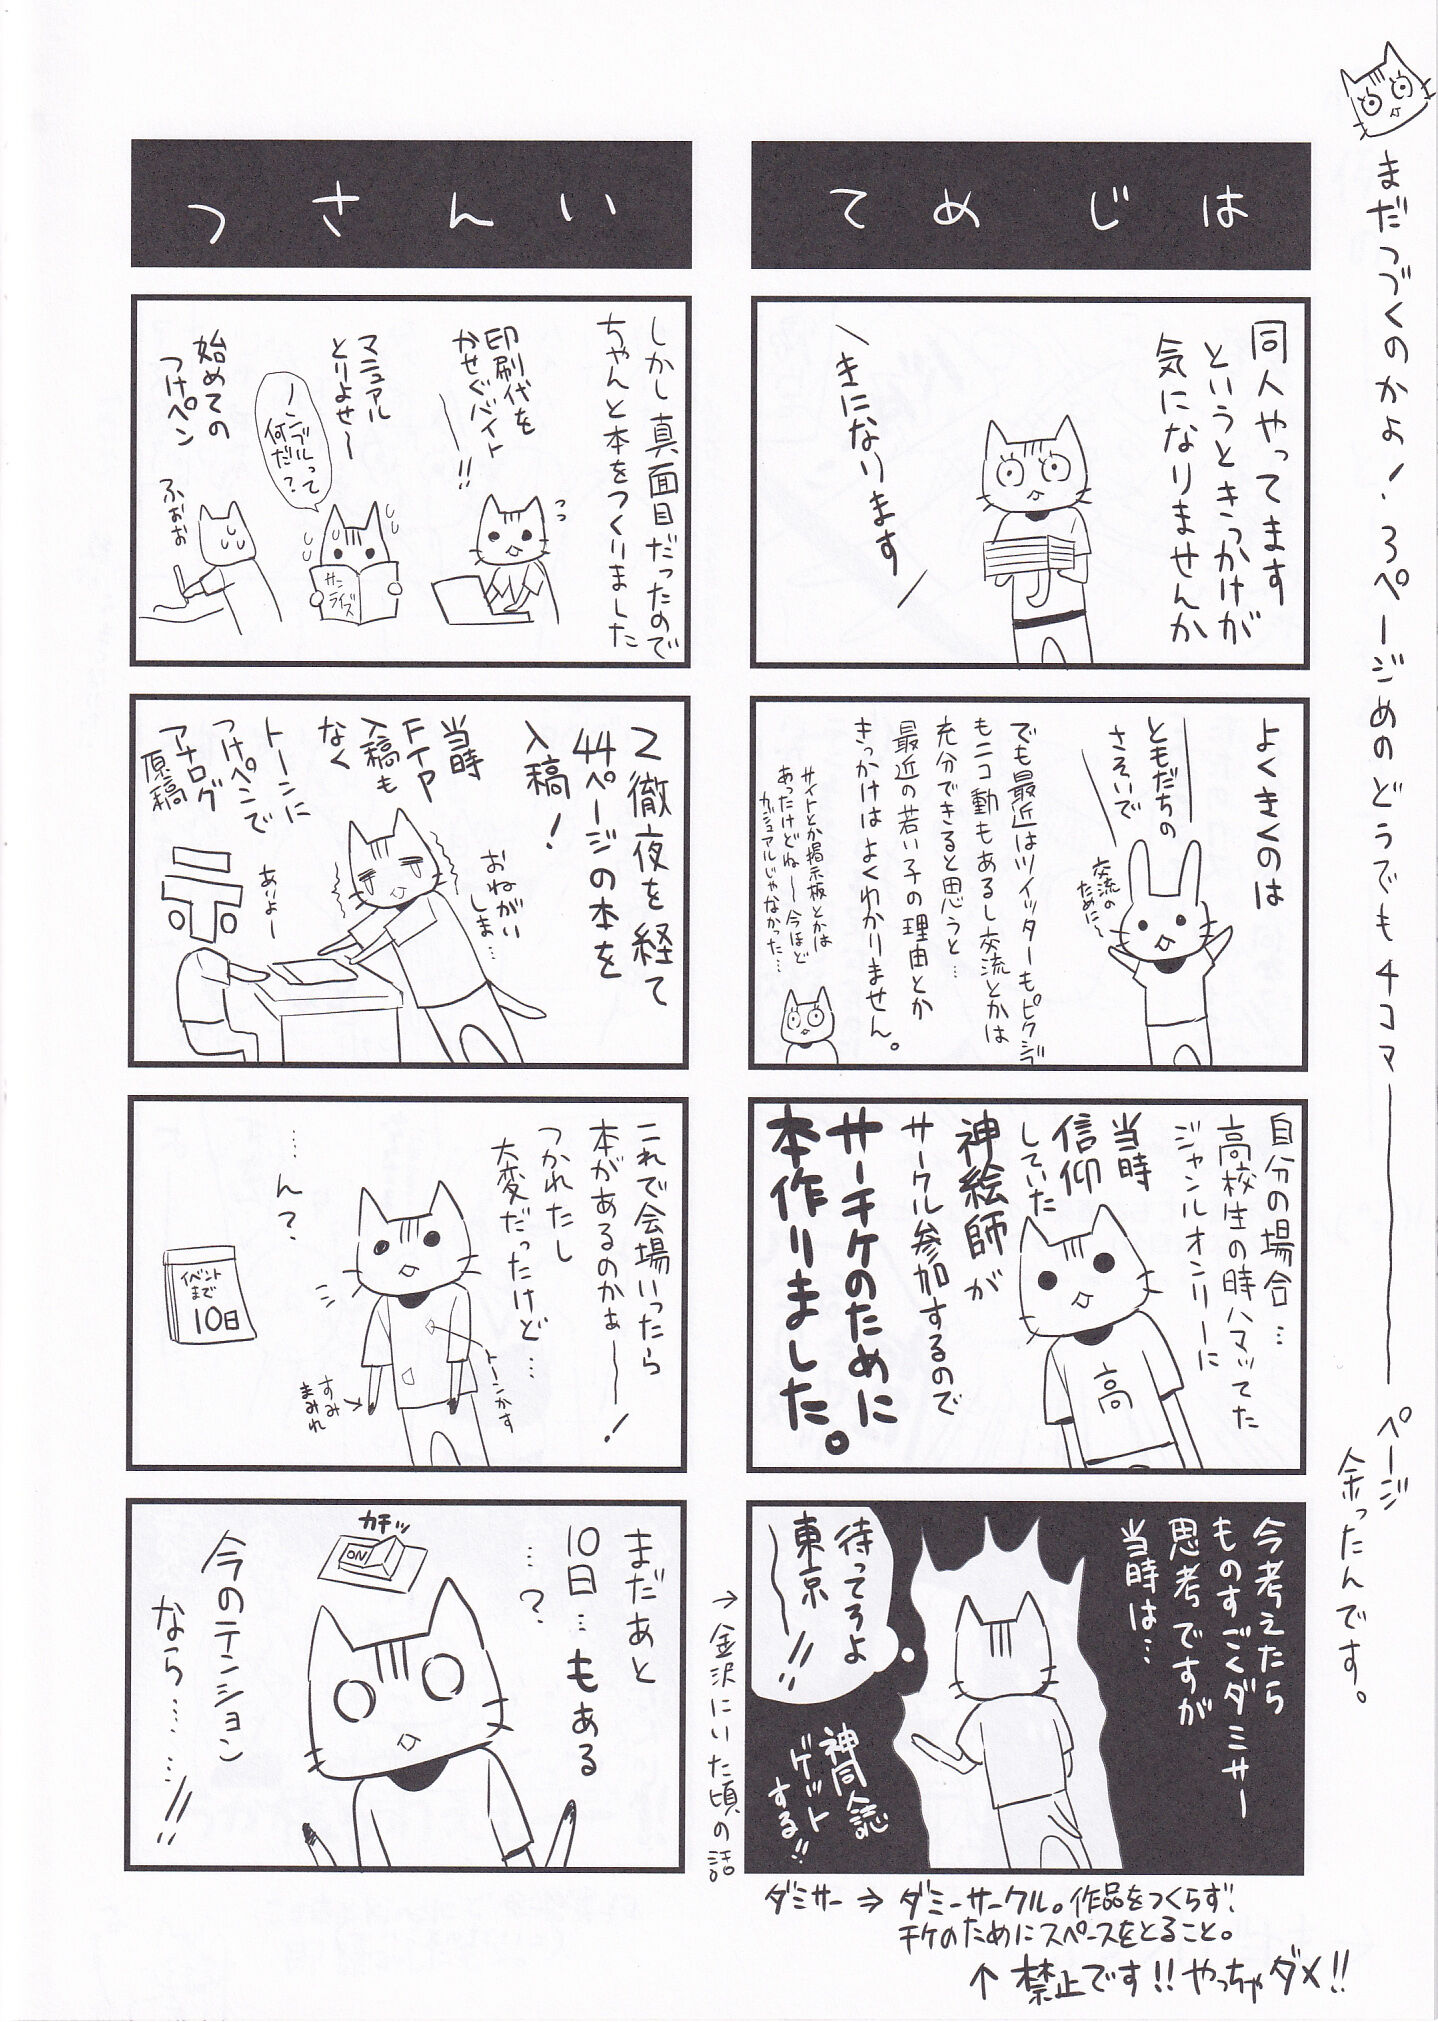 まだつづくのかよ！3ページめのどうでも4コマ――
ページ
余ったんです。
はじめて
同人やってます
というときっかけが
気になりませんか
きになります
よくきくのは
ともだちの
さそいで
交流の
ために〜
でも最近はツイッターもピクシブ
もニコ動もあるし交流とかは
充分できると思うと…
最近の若い子の理由とか
きっかけはよくわかりません。
サイトとか掲示板とかは
あったけどね――今ほど
カジュアルじゃなかった…
自分の場合…
高校生の時ハマってた
ジャンルオンリーに
当時
信仰
していた
神絵師が
サークル参加するので
サーチケのために
本作りました。
高
今考えたら
ものすごくダミサー
思考ですが
当時は…
待ってろよ
東京――!!
神同人誌
ゲット
する!!
→金沢にいた頃の話
ダミサー⇒ダミーサークル。作品をつくらず、
チケのためにスペースをとること。
↑禁止です!!やっちゃダメ!!
いんさつ
しかし真面目だったので
ちゃんと本をつくりました
印刷代を
かせぐバイト
――!!
マニュアル
とりよせ〜
ノンブルって
何だ？
サン
ライズ
始めての
つけペン
ふぉぉ
2徹夜を経て
44ページの本を
入稿！
当時
FTP
入稿も
なく
トーンに
つけペンで
アナログ
原稿
おねがい
しま…
あいよー
〒
これで会場いったら
本があるのかぁ――！
つかれたし
大変だったけど…
……ん？
トーンかす
すみ
まみれ
イベント
まで
10日
まだあと
10日…もある
…？
カチッ
ON
今のテンション
なら……!!